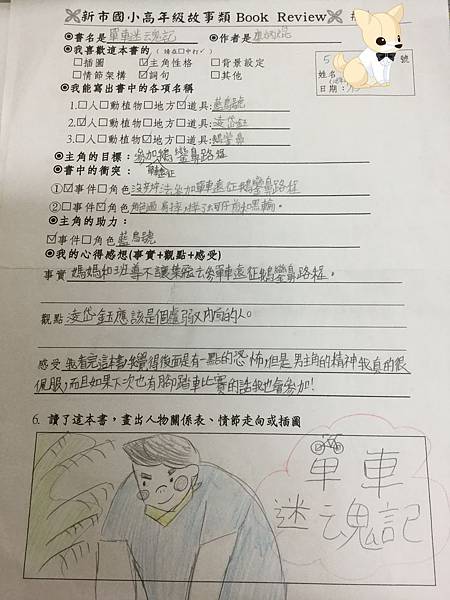 新市國小高年級故事類 Book Review #
◉書名是單車迷魂記 ◉作者是
◉我喜歡這本書的(請在□中打✓)
□插圖 ☑主角性格 □背景設定
□情節架構 ☑詞句 □其他
5 號
姓名
日期:
◉我能寫出書中的各項名稱
1.□人□動植物□地方☑道具:藍鳥號
2.☑人□動植物□地方□道具:凌岱鈺
3.□人□動植物☑地方□道具:鵝鑾鼻
◉主角的目標:參加鵝鑾鼻路程
◉書中的衝突: 遠征
①☑事件□角色 沒辦法參加單車遠征鵝鑾鼻路程
②□事件☑角色
◉主角的助力:
☑事件□角色 藍鳥號
◉我的心得感想(事實+觀點+感受)
事實 媽媽和班導不讓集宏去參單車遠征鵝鑾鼻路程。
觀點 凌岱鈺應該是個虛弱又內向的人。
感受 我看完這本書我覺得後面是有一點的恐怖,但是男主角的精神我真的很
佩服,而且如果下次也有腳踏車比賽的話我也會參加!
6. 讀了這本書,畫出人物關係表、情節走向或插圖
單車
迷魂記